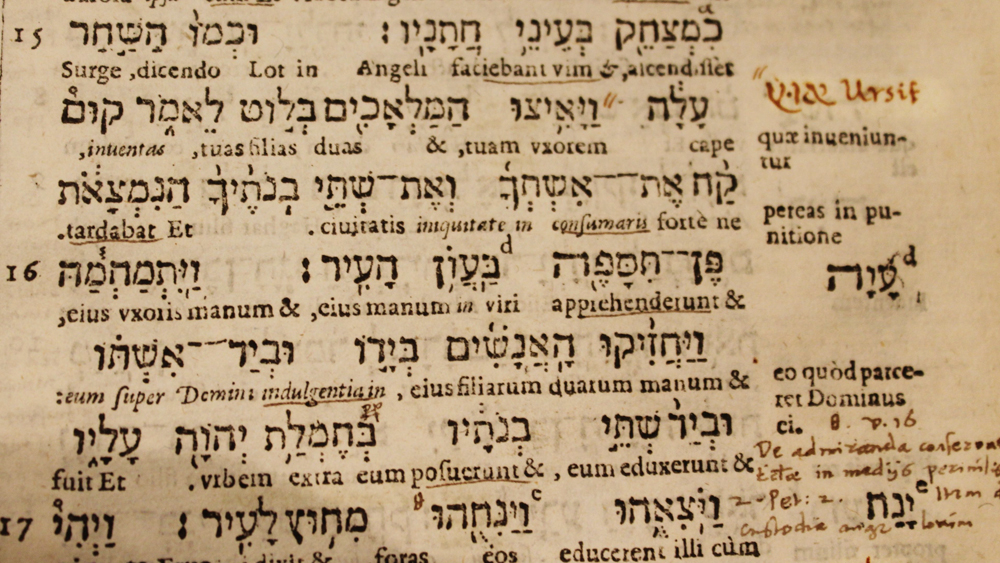 15 כִמְצַחֵ֖ק בְּעֵינֵ֥י חֲתָנָֽיו׃ וּכְמוֹ֙ הַשַּׁ֣חַר
Surge ,dicendo Lot in Angeli faciebant vim &
עָלָ֔ה וַיָּאִ֥יצוּ הַמַּלְאָכִ֖ים בְּל֣וֹט לֵאמֹ֑ר קוּם֩
,inuentas ,tuas filias duas & ,tuam vxorem cape
quæ inueniun-
tur
קַ֨ח אֶֽת־אִשְׁתְּךָ֜ וְאֶת־שְׁתֵּ֤י בְנֹתֶ֨יךָ֙ הַנִּמְצָאֹ֔ת
.tardabat Et .ciuitatis iniquitate in consumaris fortè ne
pereas in pu-
nitione
16 פֶּן־תִּסָּפֶ֖ה בַּעֲוֹ֥ן d הָעִֽיר׃ וַֽיִּתְמַהְמָ֓הּ
עָוָה d
,eius vxoris manum & ,eius manum in viri apprehenderunt &
וַיַּחֲזִ֨יקוּ הָאֲנָשִׁ֜ים בְּיָד֣וֹ וּבְיַד־אִשְׁתּ֗וֹ
:eum super Domini indulgentia in , eius filiarum duarum manum &
eo quòd parce-
ret Dominus
ei. v. 16
וּבְיַד֙ שְׁתֵּ֣י בְנֹתָ֔יו בְּחֶמְלַ֥ת יְהוָ֖ה עָלָ֑יו
fuit Et .vrbem extra eum posuerunt & , eum eduxerunt &
De
in medijs
2 Pet: 2.
17 וַיֹּצִאֻ֥הוּ וַיַּנִּחֻ֖הוּ c מִח֥וּץ לָעִֽיר׃ וַיְהִי֩
יָנַח
& foras eos educerent illi cùm